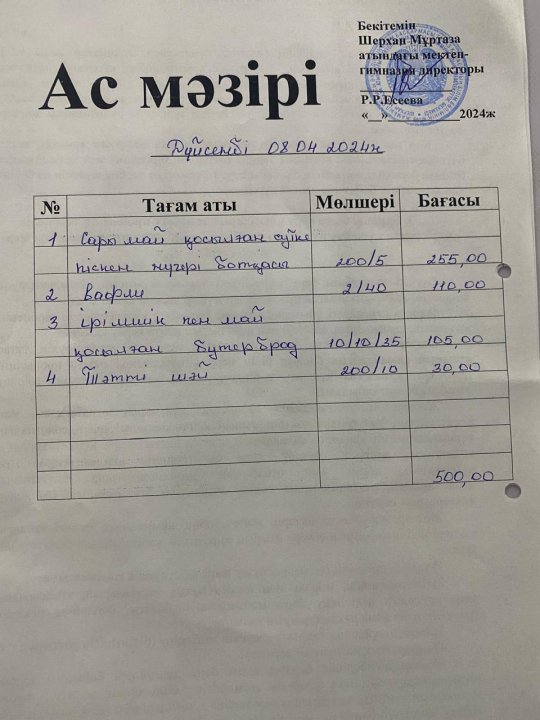 Бекітемін
Шерхан Мұртаза
атындағы мектеп-
гимназия директоры
Р.Р.Есеева
«__»___________2024ж
Ас мәзірі
Дүйсенбі 08 04 2024ж
№ Тағам аты Мөлшері Бағасы
1 Сары май қосылған сүтке
піскен жүгері ботқасы 200/5 255,00
2 Вафли 2/40 110,00
3 ірімшік пен май
қосылған бутерброд 10/10/35 105,00
4 Тәтті шәй 200/10 30,00
500,00